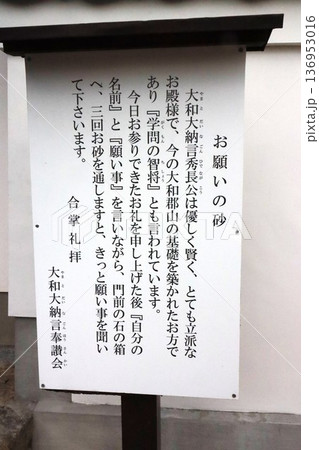 お願いの砂
大和大納言秀長公は優しく賢く、とても立派な
お殿様で、今の大和郡山の基礎を築かれたお方で
あり『学問の智将』とも言われています。
今日お参りできたお礼を申し上げた後『自分の
名前』と『願い事』を言いながら、門前の石の箱
へ、三回お砂を通しますと、きっと願い事を聞い
て下さいます。
合掌礼拝
大和大納言奉讃会
136953016